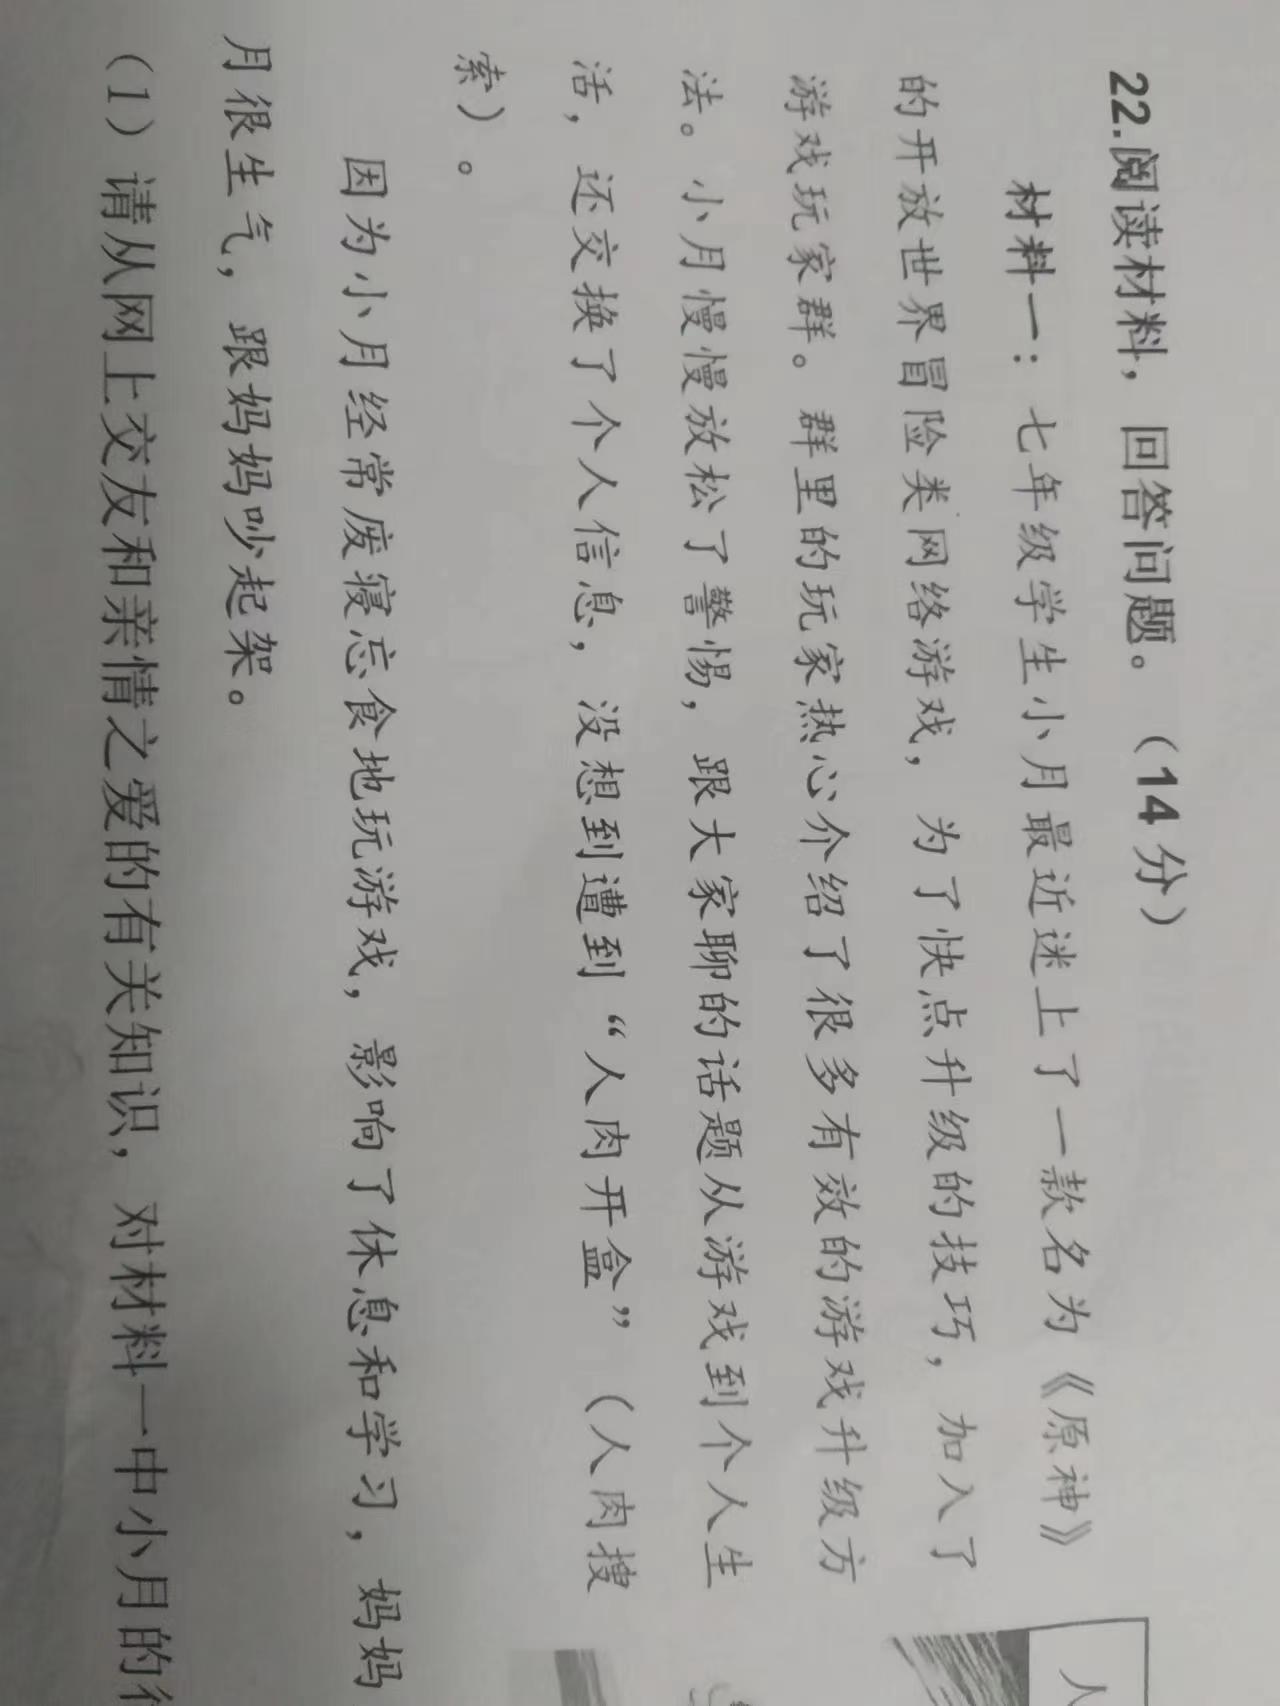 22.阅读材料，回答问题。（14 分）
人
材料一：七年级学生小月最近迷上了一款名为《原神》
的开放世界冒险类网络游戏，为了快点升级的技巧，加入了
游戏玩家群。群里的玩家热心介绍了很多有效的游戏升级方
法。小月慢慢放松了警惕，跟大家聊的话题从游戏到个人生
活，还交换了个人信息，没想到遭到“人肉开盒”（人肉搜
索）。
因为小月经常废寝忘食地玩游戏，影响了休息和学习，妈妈
月很生气，跟妈妈吵起架。
（1）请从网上交友和亲情之爱的有关知识，对材料一中小月的